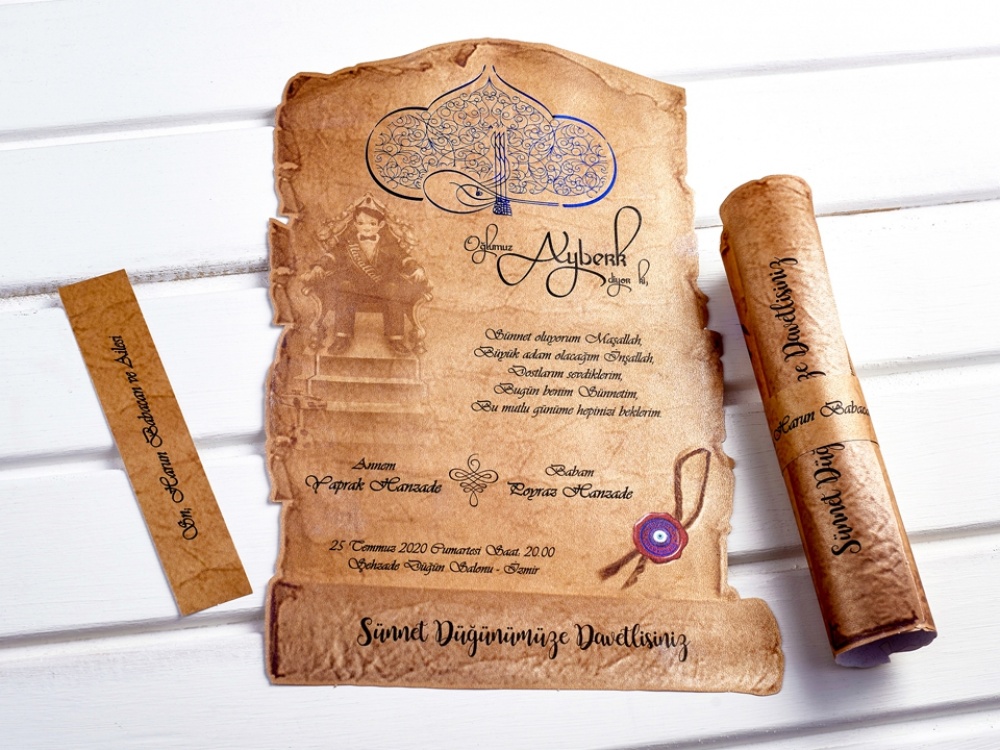 Oğlumuz
Ayberk
diyor ki,
Maşallah
Sünnet oluyorum Maşallah,
Büyük adam olacağım İnşallah,
Dostlarım sevdiklerim,
Bugün benim Sünnetim,
Bu mutlu günüme hepinizi beklerim.
Annem
Yaprak Hanzade
Babam
Poyraz Hanzade
25 Temmuz 2020 Cumartesi Saat: 20.00
Şehzade Düğün Salonu - İzmir
Sünnet Düğünümüze Davetlisiniz
Sn, Harun Babacan ve Ailesi
Sünnet Düğ
ze Davetlisiniz
Harun Babaca